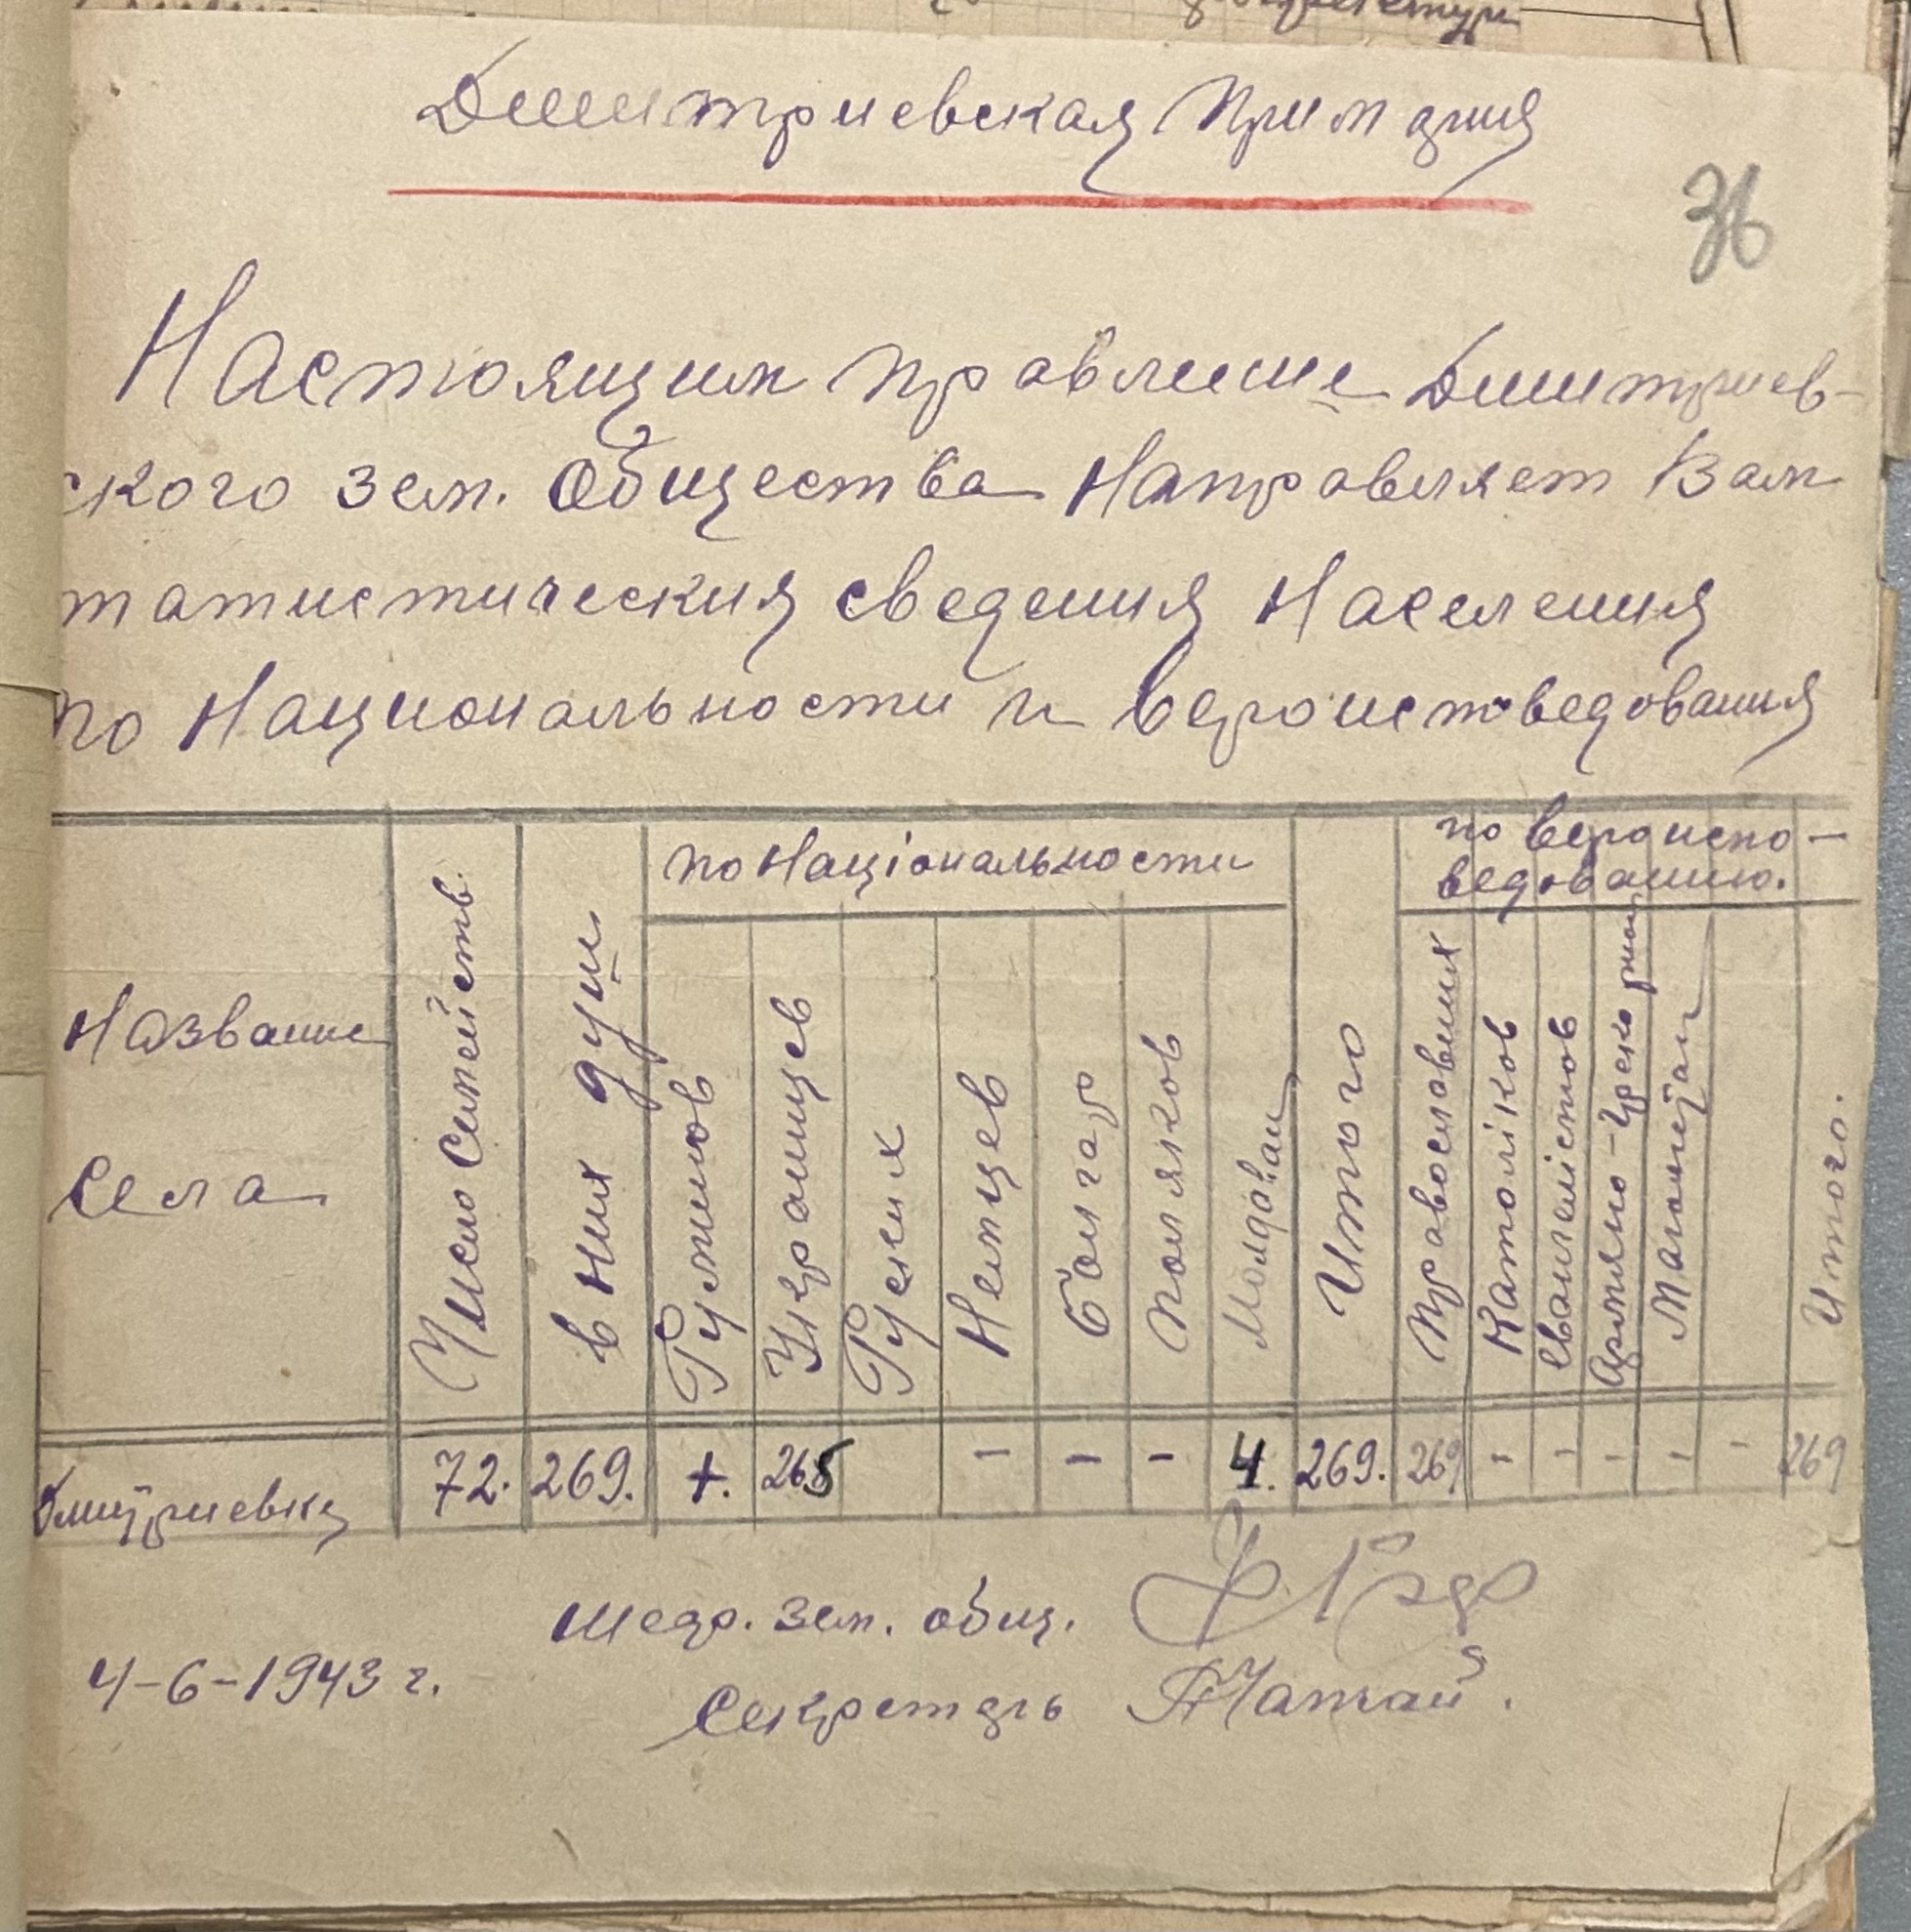 Дмитриевская Примария
36
Настоящим правление Дмитриев-
ского зем. Общества Направляет Вам
татистическия сведения Населения
по Национальности и вероисповедования
Название
Села
Число Семейств
в них душ
по Національности
Румынов
Украинцев
Руских
Немцев
Болгар
Поляков
Молдован
Итого
по вероиспо-
ведованию.
Православних
Католіков
Евангелістов
Армяно-Греко
Магометан
Итого.
Дмитриевка 72. 269. +. 265 - - - 4. 269. 269 - - - - - 269
Шедр. зем. общ.
4-6-1943 г.
Секретарь